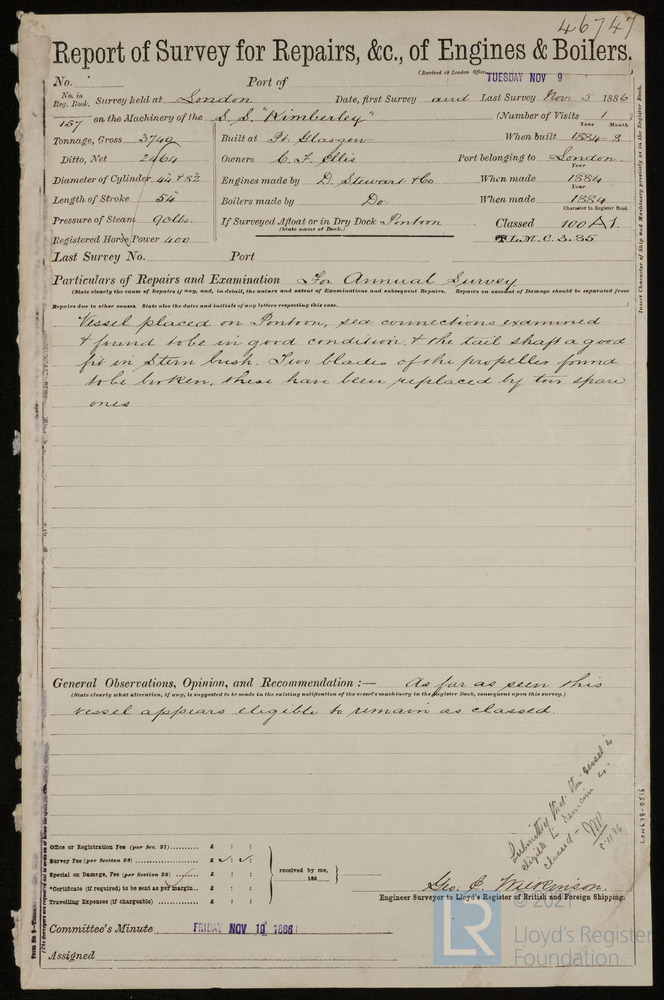 46747
Report of Survey for Repairs, &c., of Engines & Boilers.
(Received at London Office TUESDAY NOV 9
No. Port of
No. in Reg. Book. Survey held at London Date, first Survey and Last Survey Nov 5 1886
157 on the Machinery of the S. S. "Kimberley" (Number of Visits 1
Year Month
Tonnage, Gross 3749 Built at Pt. Glasgow When built 1884 - 8
Ditto, Net 2464 Owners C. F. Ellis Port belonging to London
Year
Diameter of Cylinder 44 & 82 Engines made by D. Stewart & Co When made 1884
Year
Length of Stroke 54" Boilers made by Do When made 1884
Character in Register Book.
Pressure of Steam 90 lbs. If Surveyed Afloat or in Dry Dock Pontoon Classed 100 A1.
(State name of Dock.)
Registered Horse Power 400 L.M.C. 3.85
Last Survey No. Port
Particulars of Repairs and Examination For Annual Survey
(State clearly the cause of Repairs if any, and, in detail, the nature and extent of Examinations and subsequent Repairs. Repairs on account of Damage should be separated from
Repairs due to other causes. State also the dates and initials of any letters respecting this case.
Vessel placed on Pontoon, sea connections examined
& found to be in good condition & the tail shaft a good
fit in Stern bush. Two blades of the propeller found
to be broken, these have been replaced by two spare
ones
General Observations, Opinion, and Recommendation :— As far as seen this
(State clearly what alteration, if any, is suggested to be made in the existing notification of the vessel's machinery in the Register Book, consequent upon this survey.)
vessel appears eligible to remain as classed.
Submitted that this vessel is
eligible to remain as
classed -
5.11.86
Office or Registration Fee (per Sec. 27) £ : :
Survey Fee (per Section 28) £ : :
Special on Damage, Fee (per Section 28) £ : :
Certificate (if required) to be sent as per margin.. £ : :
Travelling Expenses (if chargeable) £ : :
received by me,
188
Geo. C. Wilkinson.
Engineer Surveyor to Lloyd's Register of British and Foreign Shipping.
Committee's Minute FRIDAY NOV 19 1886
Assigned
Insert Character of Ship and Machinery precisely as in the Register Book.
LON678-0516
© 2021
LR
Lloyd's Register
Foundation